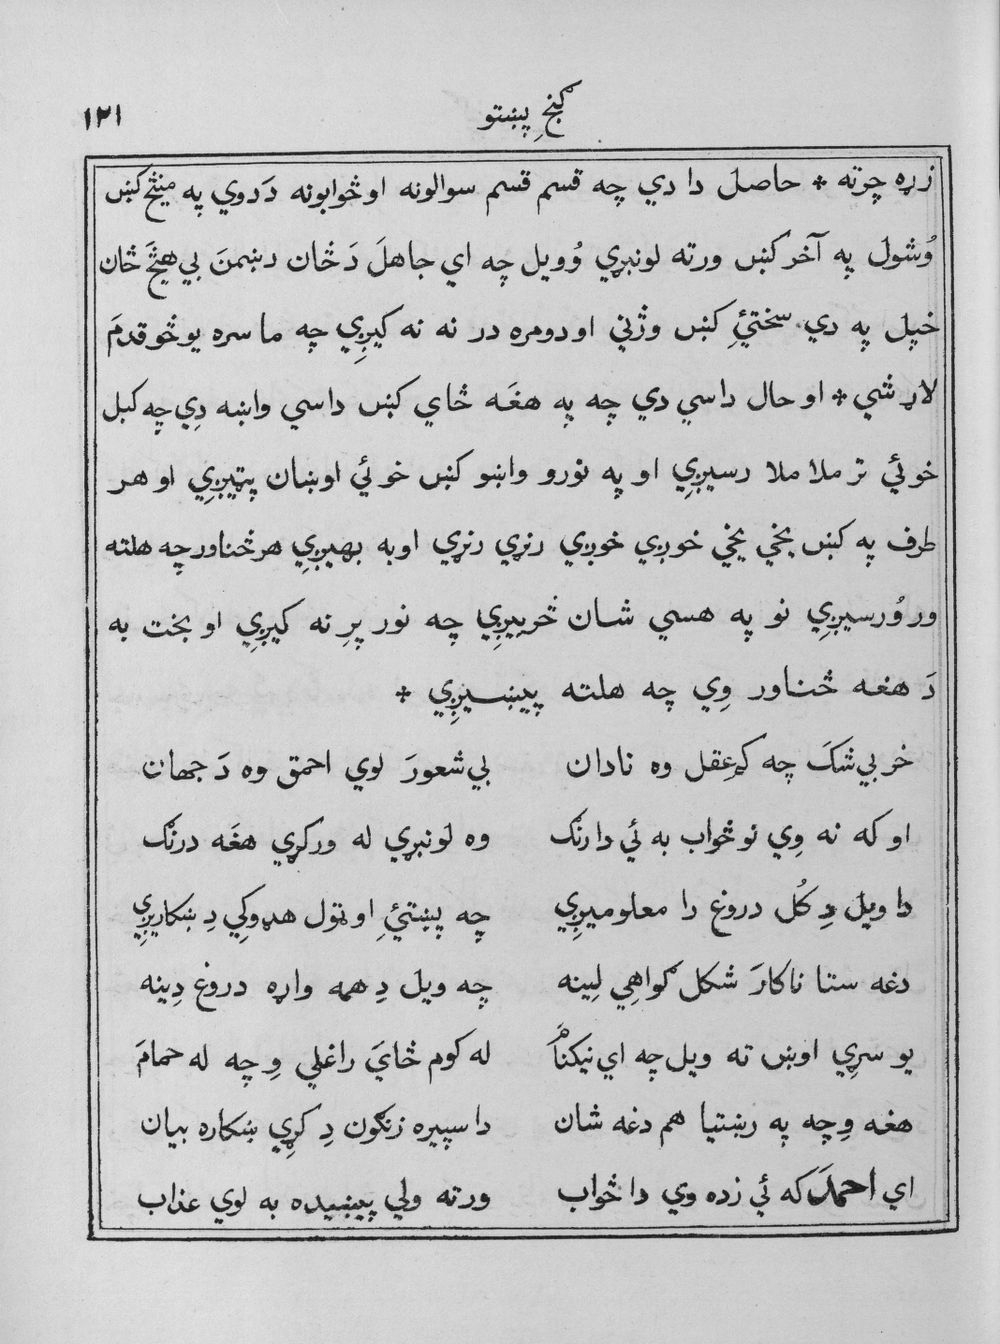 گنجِ پښتو ۱۲۱
زړه چرته ٭ حاصل دا دي چه قسم قسم سوالونه او ځوابونه دَ دوي په مينځ کښ
وُشول په آخر کښ ورته لونبړي وُويل چه اي جاهلَ دَ ځان دښمنَ بي هيڅَ ځان
خپل په دي سختئِ کښ وژني او دومره در نه نه کيږِي چه ما سره يو څو قدمَ
لاړ شي ٭ او حال داسي دي چه په هغَه ځاي کښ داسي واښه دِي چه کبل
خوئي تر ملا ملا رسيږِي او په نورو واښو کښ خوئي اوښان پټيږِي او هر
طرف په کښ يخي يخي خوږي خوږي رنړي رنړي اوبه بهيږِي هر ځناور چه هلته
ور وُرسيږِي نو په هسي شان څربيږِي چه نور پرِ نه کيږِي او بخت به
دَ هغه ځناور وِي چه هلته پيښيږِي ٭
خر بي شکَ چه کم عقل وه نادان بي شعورَ لوي احمق وه دَ جهان
او که نه وِي نو ځواب به ئي دا رنګ وه لونبړي له ورکړي هغَه درنګ
دا ويل دِ کُل دروغ را معلوميږِي چه پښتئِ او ټول هډوکِي دِ ښکاريږِي
دغه ستا ناکارَ شکل ګواهِي لِينه چه ويل دِ همه واړه دروغ دِينه
يو سړِي اوښ ته ويل چه اي نيکنامَ له کوم ځايَ راغلي وِ چه له حمامَ
هغه وِ چه په رښتيا هم دغه شان دا سپيره زنګون دِ کړِي ښکاره بيان
اي احمدَ که ئي زده وي دا ځواب ورته ولي پيښيده به لوي عذاب